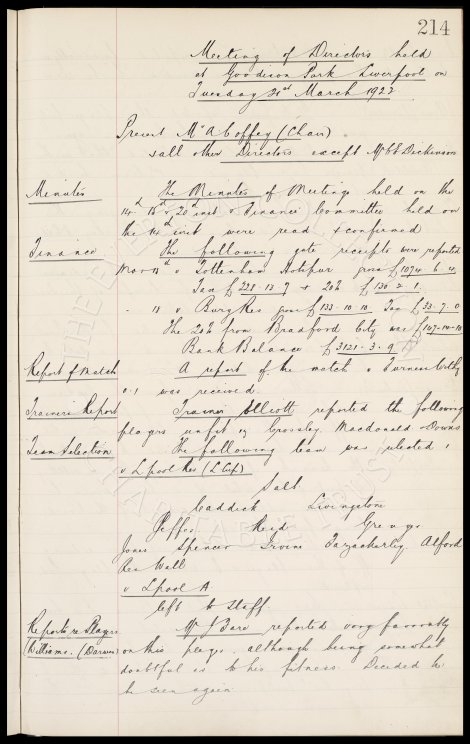 214
Meeting of Directors held
at Goodison Park Liverpool on
Tuesday 21st March 1922
Present Mr A Coffey (Chair)
& all other Directors except Mr C E Dickinson
Minutes The Minutes of Meetings held on the
14th 15th & 20th inst & Finance Committee held on
the 14th inst were read & confirmed
Finance The following gate receipts were reported
Mar 18th v Tottenham Hotspur gross £1074-6-4
Tax £228-13-7 & 20% £136-2-1
- 18 v Bury Res gross £133-10-10 Tax £33-7-0
The 20% from Bradford City was £147-10-10
Bank Balance £3121-3-9
Report of Match A report of the match v
0-1 was received
Trainers Report Trainer Elliott reported the following
players unfit Crossley Macdonald & Downs
Team Selection The following team was selected
v L'pool Res (L Cup)
Salt
Caddick Livingstone
Peffer Reid Grenyer
Jones Spencer Irvine Fazackerley Alford
Res Wall
v L'pool A
left to staff.
Reports re Players Mr J Bare reported very favorably
Williams. (Darwen) on this player, although being somewhat
doubtful as to his fitness. Decided he
be seen again